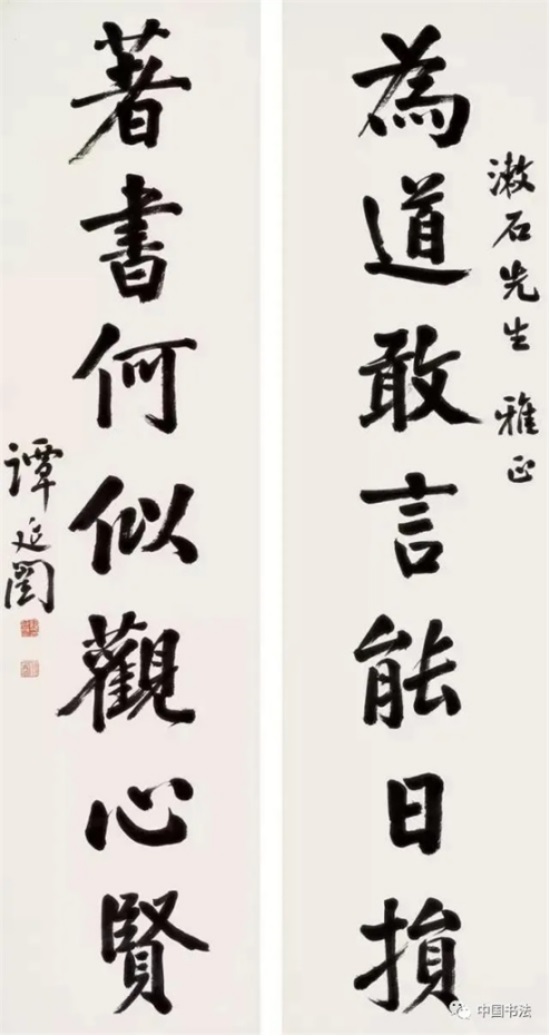 漱石先生 雅正
為道敢言能日損
著書何似觀心賢
譚延闓
中国书法